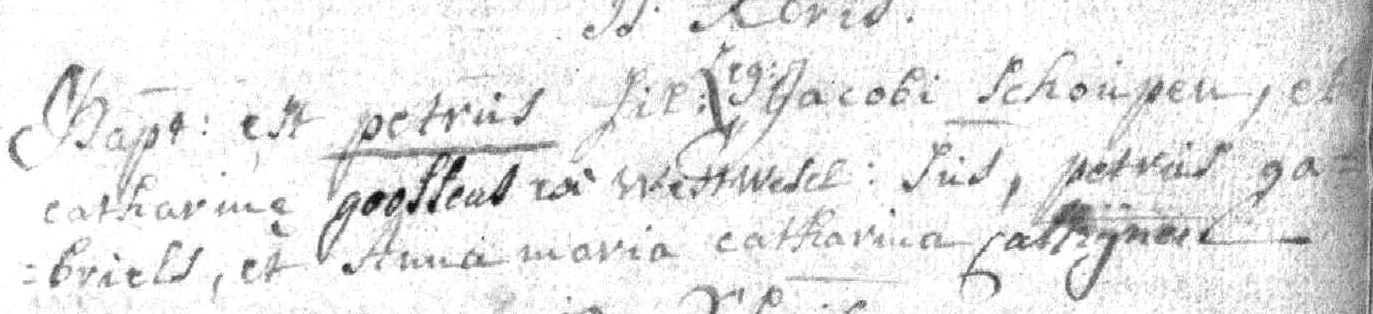 Bapt: est petrus fil: leg: Jacobi Schoupen, et
catharinę goossens ex westwesel: Sus, petrus ga=
=briels, et Anna maria catharina